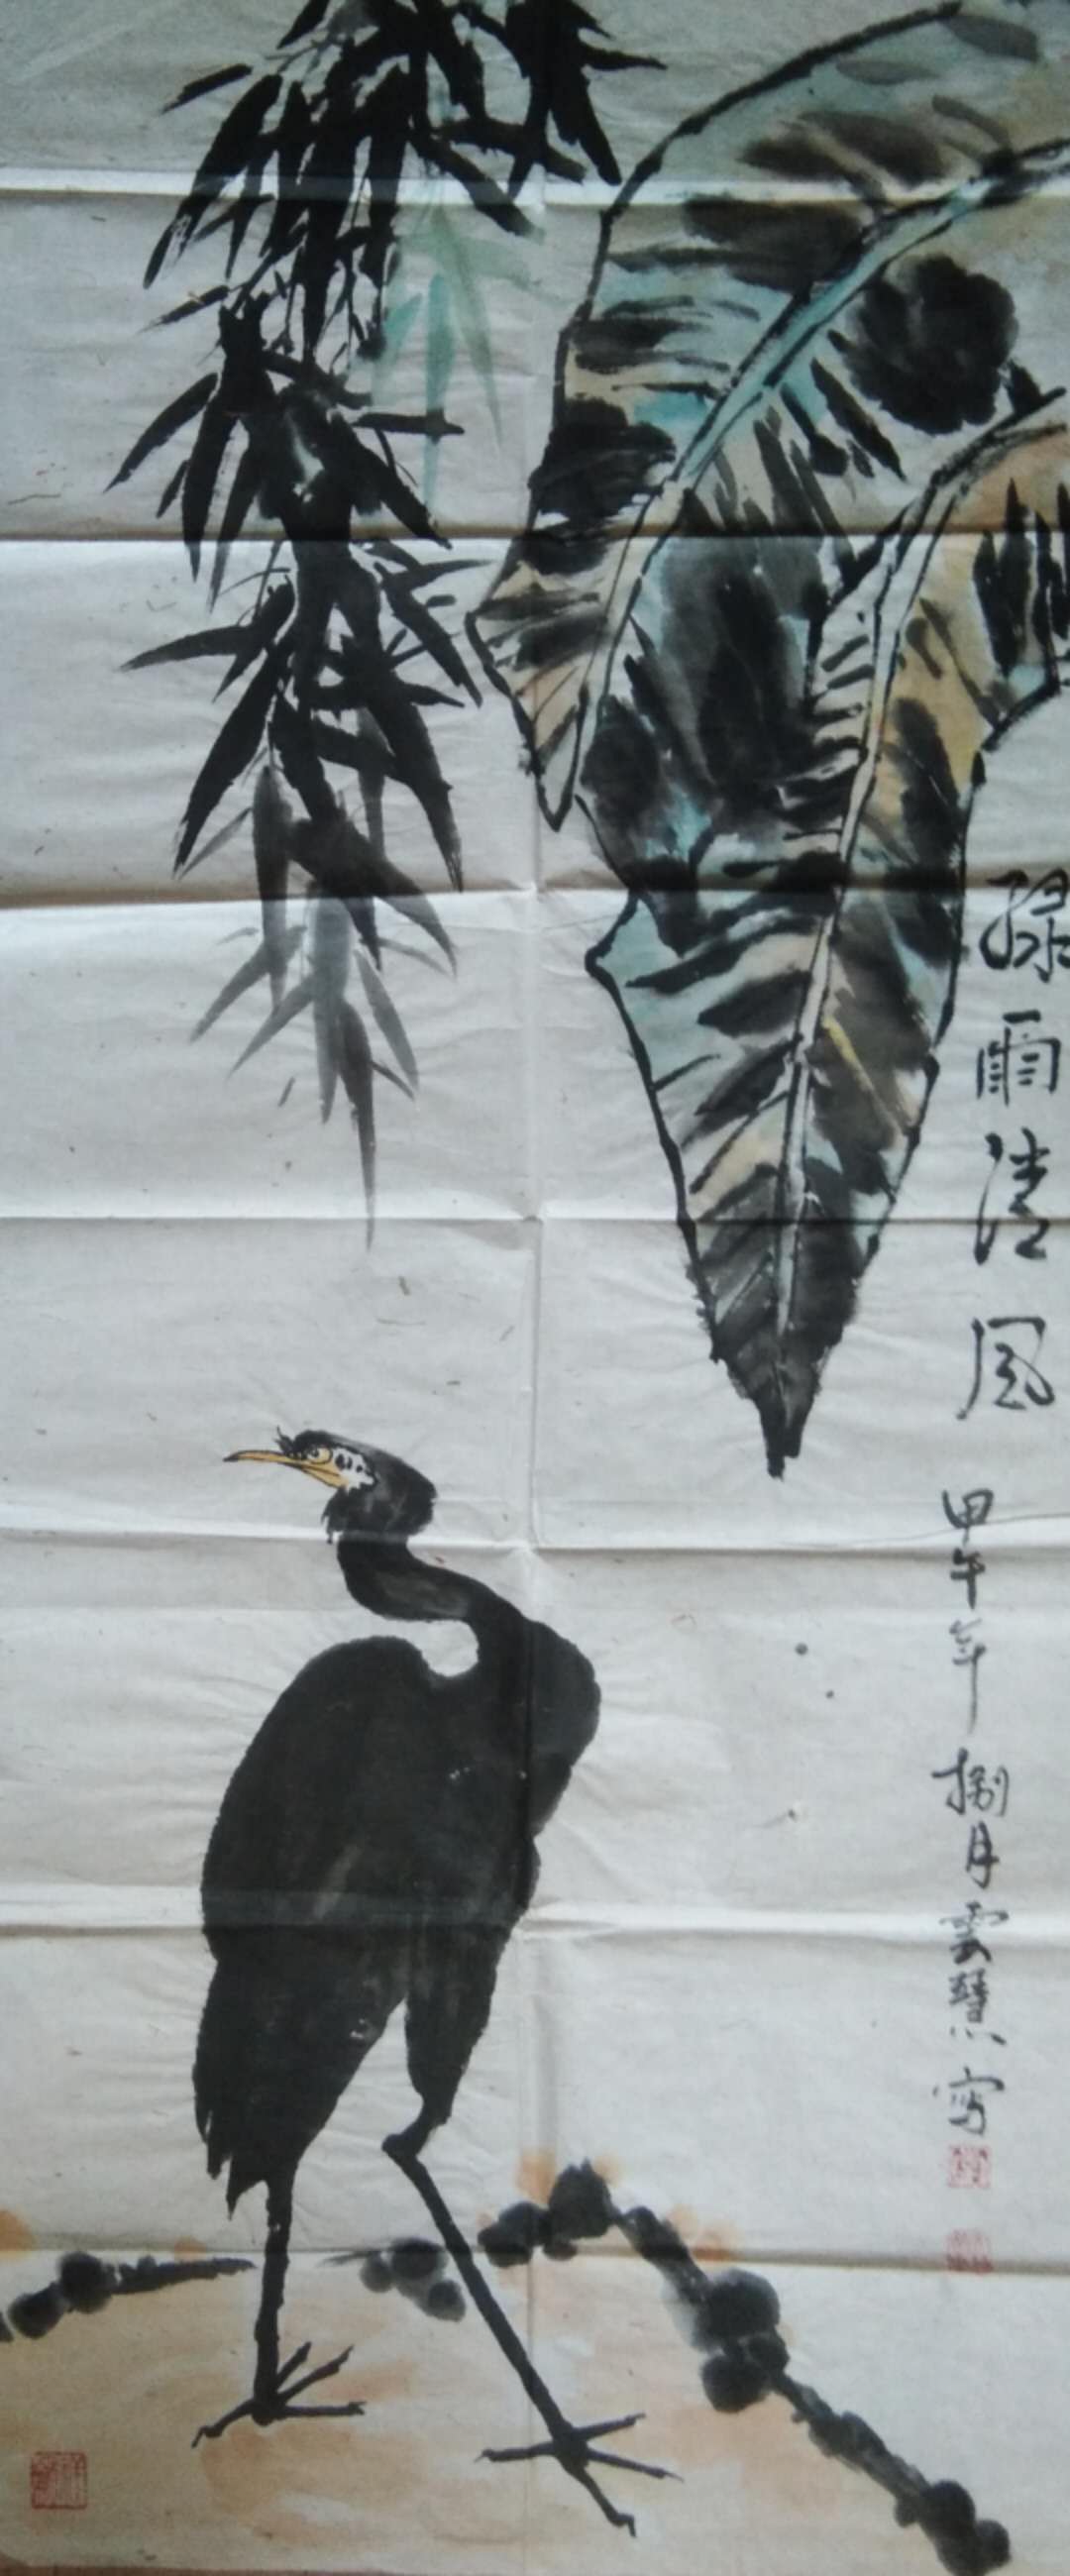 绿雨清风
甲午年捌月雲慧写